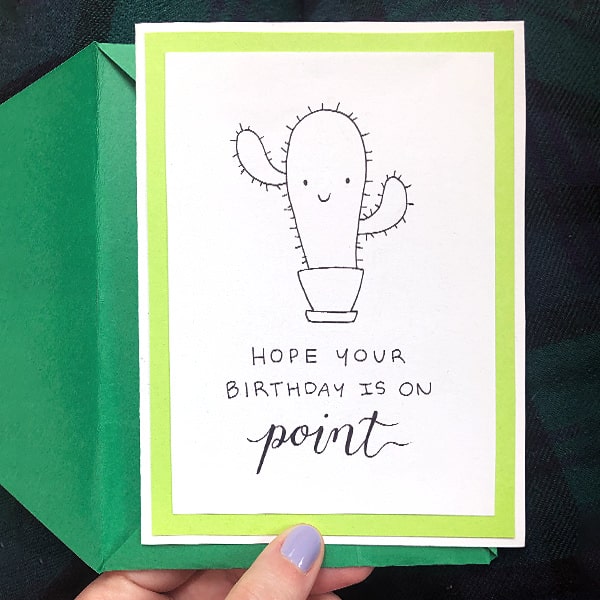 HOPE YOUR
BIRTHDAY IS ON
point